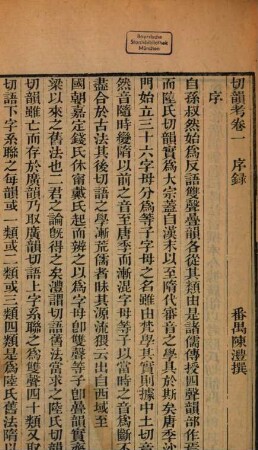 Bayerische
Staatsbibliothek
München
切韻考卷一　序錄
番禺陳澧撰
序
自孫叔然始為反語雙聲疊韻各從其類由是諸儒傳授四聲韻部作焉
而陸氏切韻實為大宗蓋自漢末以至隋代審音之學具於斯矣唐季沙
門始立三十六字母分為等子字母之名雖由梵學其實則據中土切音
然音隨時變隋以前之音至唐季而漸混字母等子以當時之音為斷不
盡合於古法其後切語之學漸荒儒者昧其源流猥云出自西域至
國朝嘉定錢氏休寧戴氏起而辯之以為字母卽雙聲等子卽疊韻實齊
梁以來之舊法也二君之論旣得之矣澧謂切語舊法當求之陸氏切韻
切韻雖亡而存於廣韻乃取廣韻切語上字系聯之為雙聲四十類又取
切語下字系聯之每韻或一類或二類或三類四類是為陸氏舊法隋以